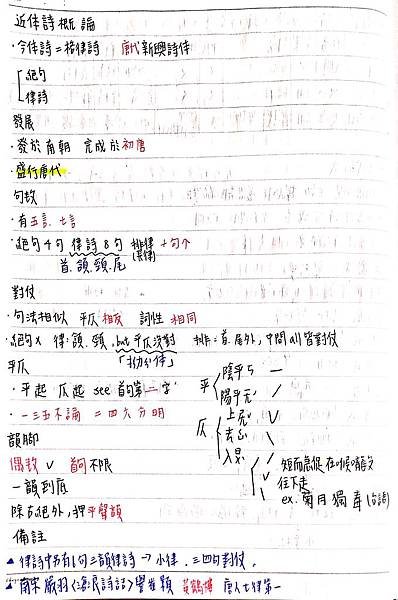 近体詩概論
·今体詩=格律詩 唐代新興詩体
絕句
律詩
發展
·發於南朝 完成於初唐
·盛行唐代
句數
·有五言.七言
·絕句4句 律詩8句 排律 十句↑
(長律)
首.頷.頸.尾
對仗
·句法相似 平仄相反 詞性相同
·絕句x 律:頷.頸, but平仄沒對 排=首.尾外,中間all皆對仗
「拗体」
平仄
·平起 仄起 see 首句第二字
·一三五不論 二四六分明
平 陰平ㄅ —
陽平 ˊ
仄 上 ˇ
去 ˋ
入
短而急促 在喉嚨
往下走
ex. 菊月獨毒(台語)
韻腳
偶數 v 首句不限
一韻到底
除古絕外,押平聲韻
備註
▲律詩中另有6句三韻律詩→小律.三四句對仗.
▲南宋 嚴羽《滄浪詩話》譽崔顥 黃鶴樓 唐人七律第一